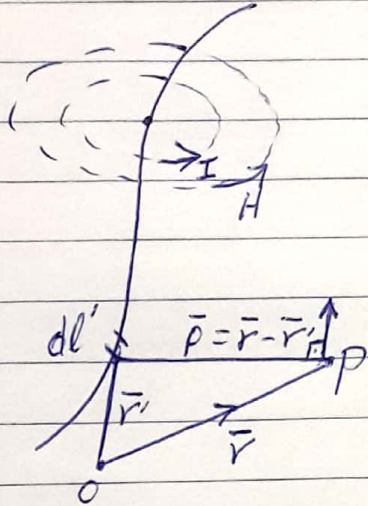 I
H
dl'
ρ̄ = r̄ - r̄'
P
r̄'
r̄
O